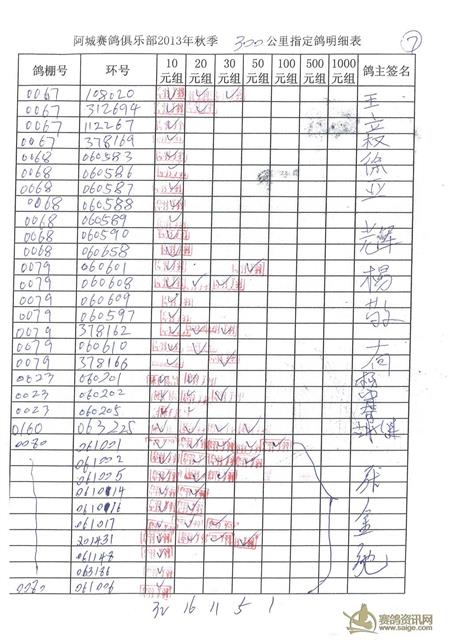 阿城赛鸽俱乐部2013年秋季 300公里指定鸽明细表 ⑦
鸽棚号 环号 10元组 20元组 30元组 50元组 100元组 300元组 500元组 1000元组 鸽主签名
0067 108020 ✓ ✓ ✓ 王
0067 312694 ✓ ✓ ✓
0067 112267 ✓ 立
0067 378169 ✓
0068 060583 ✓ 徐
0068 060586 ✓
0068 060587 ✓ 亚
0068 060588 ✓
0068 060589 ✓
0068 060590 ✓ 辉
0068 060658 ✓
0079 060601 ✓ ✓ 杨
0079 060608 ✓ ✓ ✓
0079 060609 ✓
0079 060597 ✓
0079 378162 ✓ ✓ ✓
0079 060610 ✓ ✓
0079 378166 ✓ ✓ ✓
0023 060201 ✓ 杨
0023 060202 ✓ ✓ ✓
0023 060205 ✓
0160 063225 ✓ ✓ ✓
0080 061001 ✓ ✓ ✓ ✓ ✓
061002 ✓ ✓ ✓ ✓
061005 ✓ ✓ ✓ 张
061014 ✓ ✓
061016 ✓ ✓
061017 ✓ ✓ ✓ 金
201431 ✓ ✓ ✓ ✓
061148 ✓
063186 ✓
0080 061006 ✓
16 11 5 1
赛鸽资讯网
www.saige.com